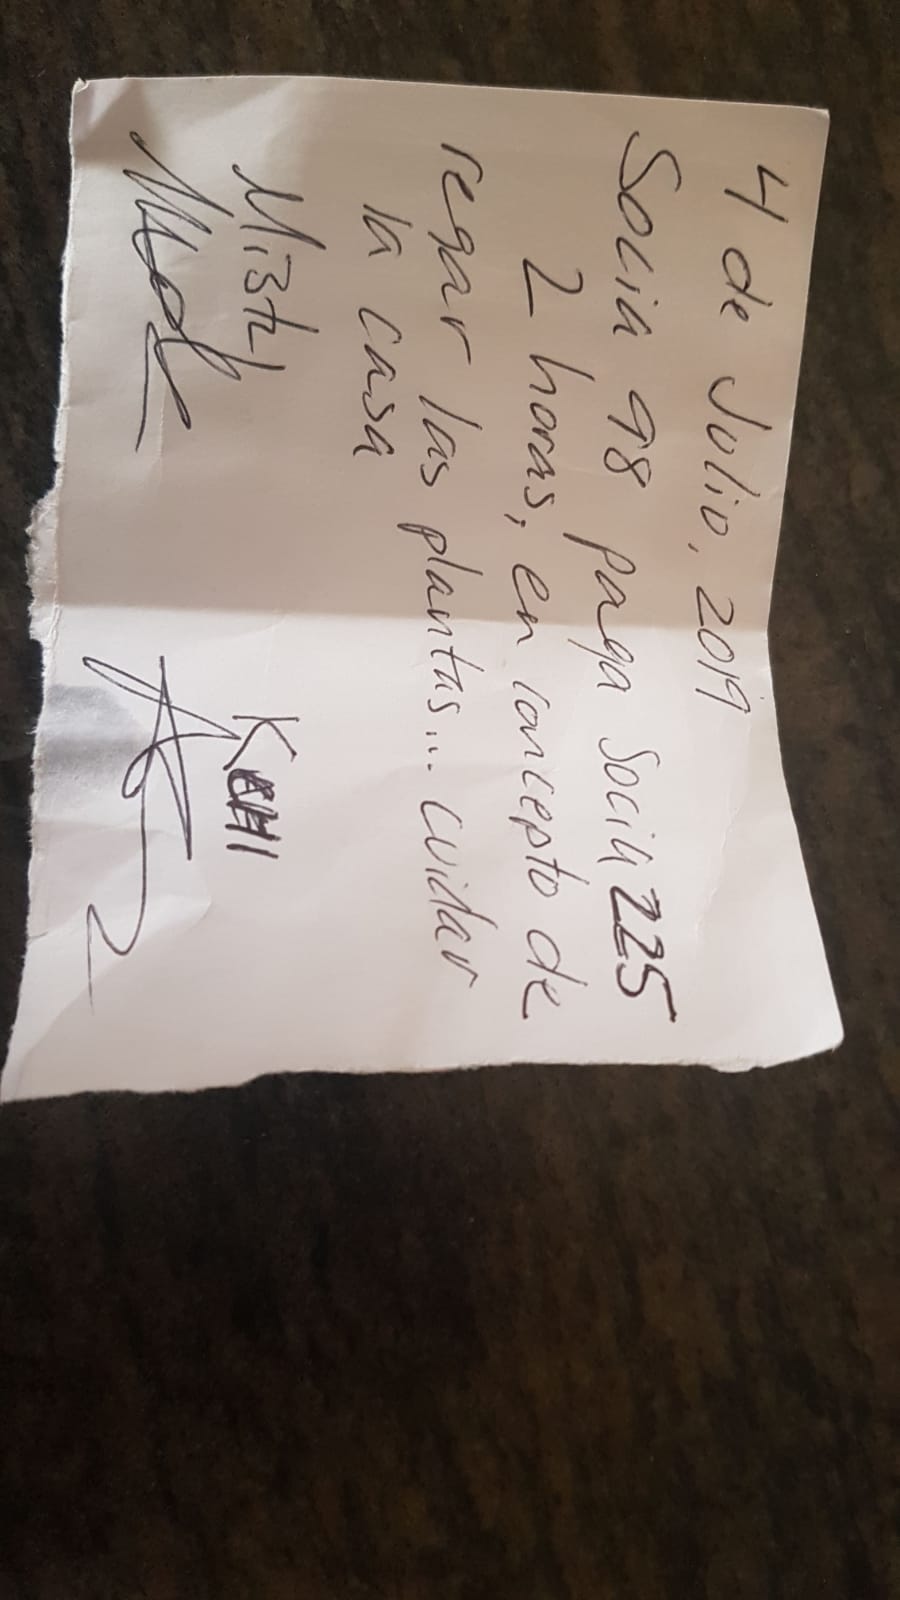 4 de Julio, 2019
Socia 98 paga Socia 225
2 horas, en concepto de
regar las plantas... cuidar
la casa